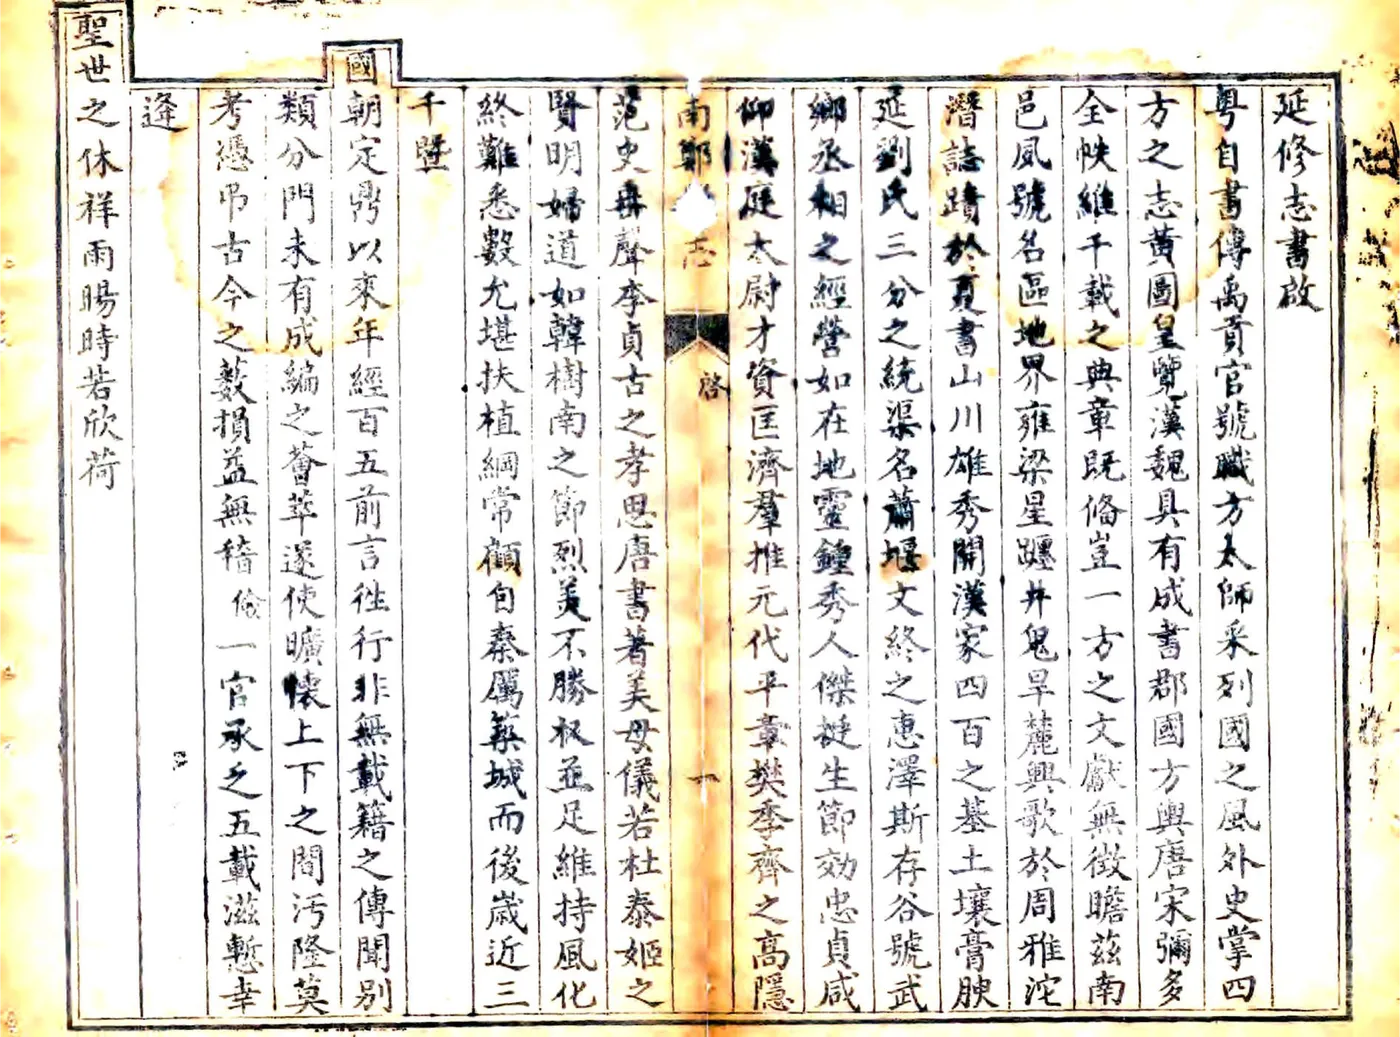 延修志書啟
粤自書傳禹貢官號職方太師采列國之風外史掌四
方之志黃圖皇覽漢魏具有成書郡國方輿唐宋彌多
全帙維千載之典章既俻豈一方之文獻無徴瞻茲南
邑夙號名區地界雍梁星躔井鬼旱麓興歌於周雅沱
潛誌蹟於夏書山川雄秀開漢家四百之基土壤膏腴
延劉氏三分之統渠名蕭堰文終之惠澤斯存谷號武
鄉丞相之經營如在地靈鍾秀人傑挺生節効忠貞咸
仰漢庭太尉才資匡濟羣推元代平章樊季齊之高隱
南鄭 志 啓 一
范史舞聲李貞古之孝思唐書著美母儀若杜泰姬之
賢明婦道如韓樹南之節烈美不勝收並足維持風化
終難悉數尤堪扶植綱常顧自秦厲築城而後嵗近三
千暨
國朝定鼎以來年經百五前言徃行非無載籍之傳聞別
類分門未有成編之薈萃遂使曠懷上下之間汚隆莫
考憑吊古今之藪損益無稽 儉一官承乏五載滋慙幸
逢
聖世之休祥雨暘時若欣荷